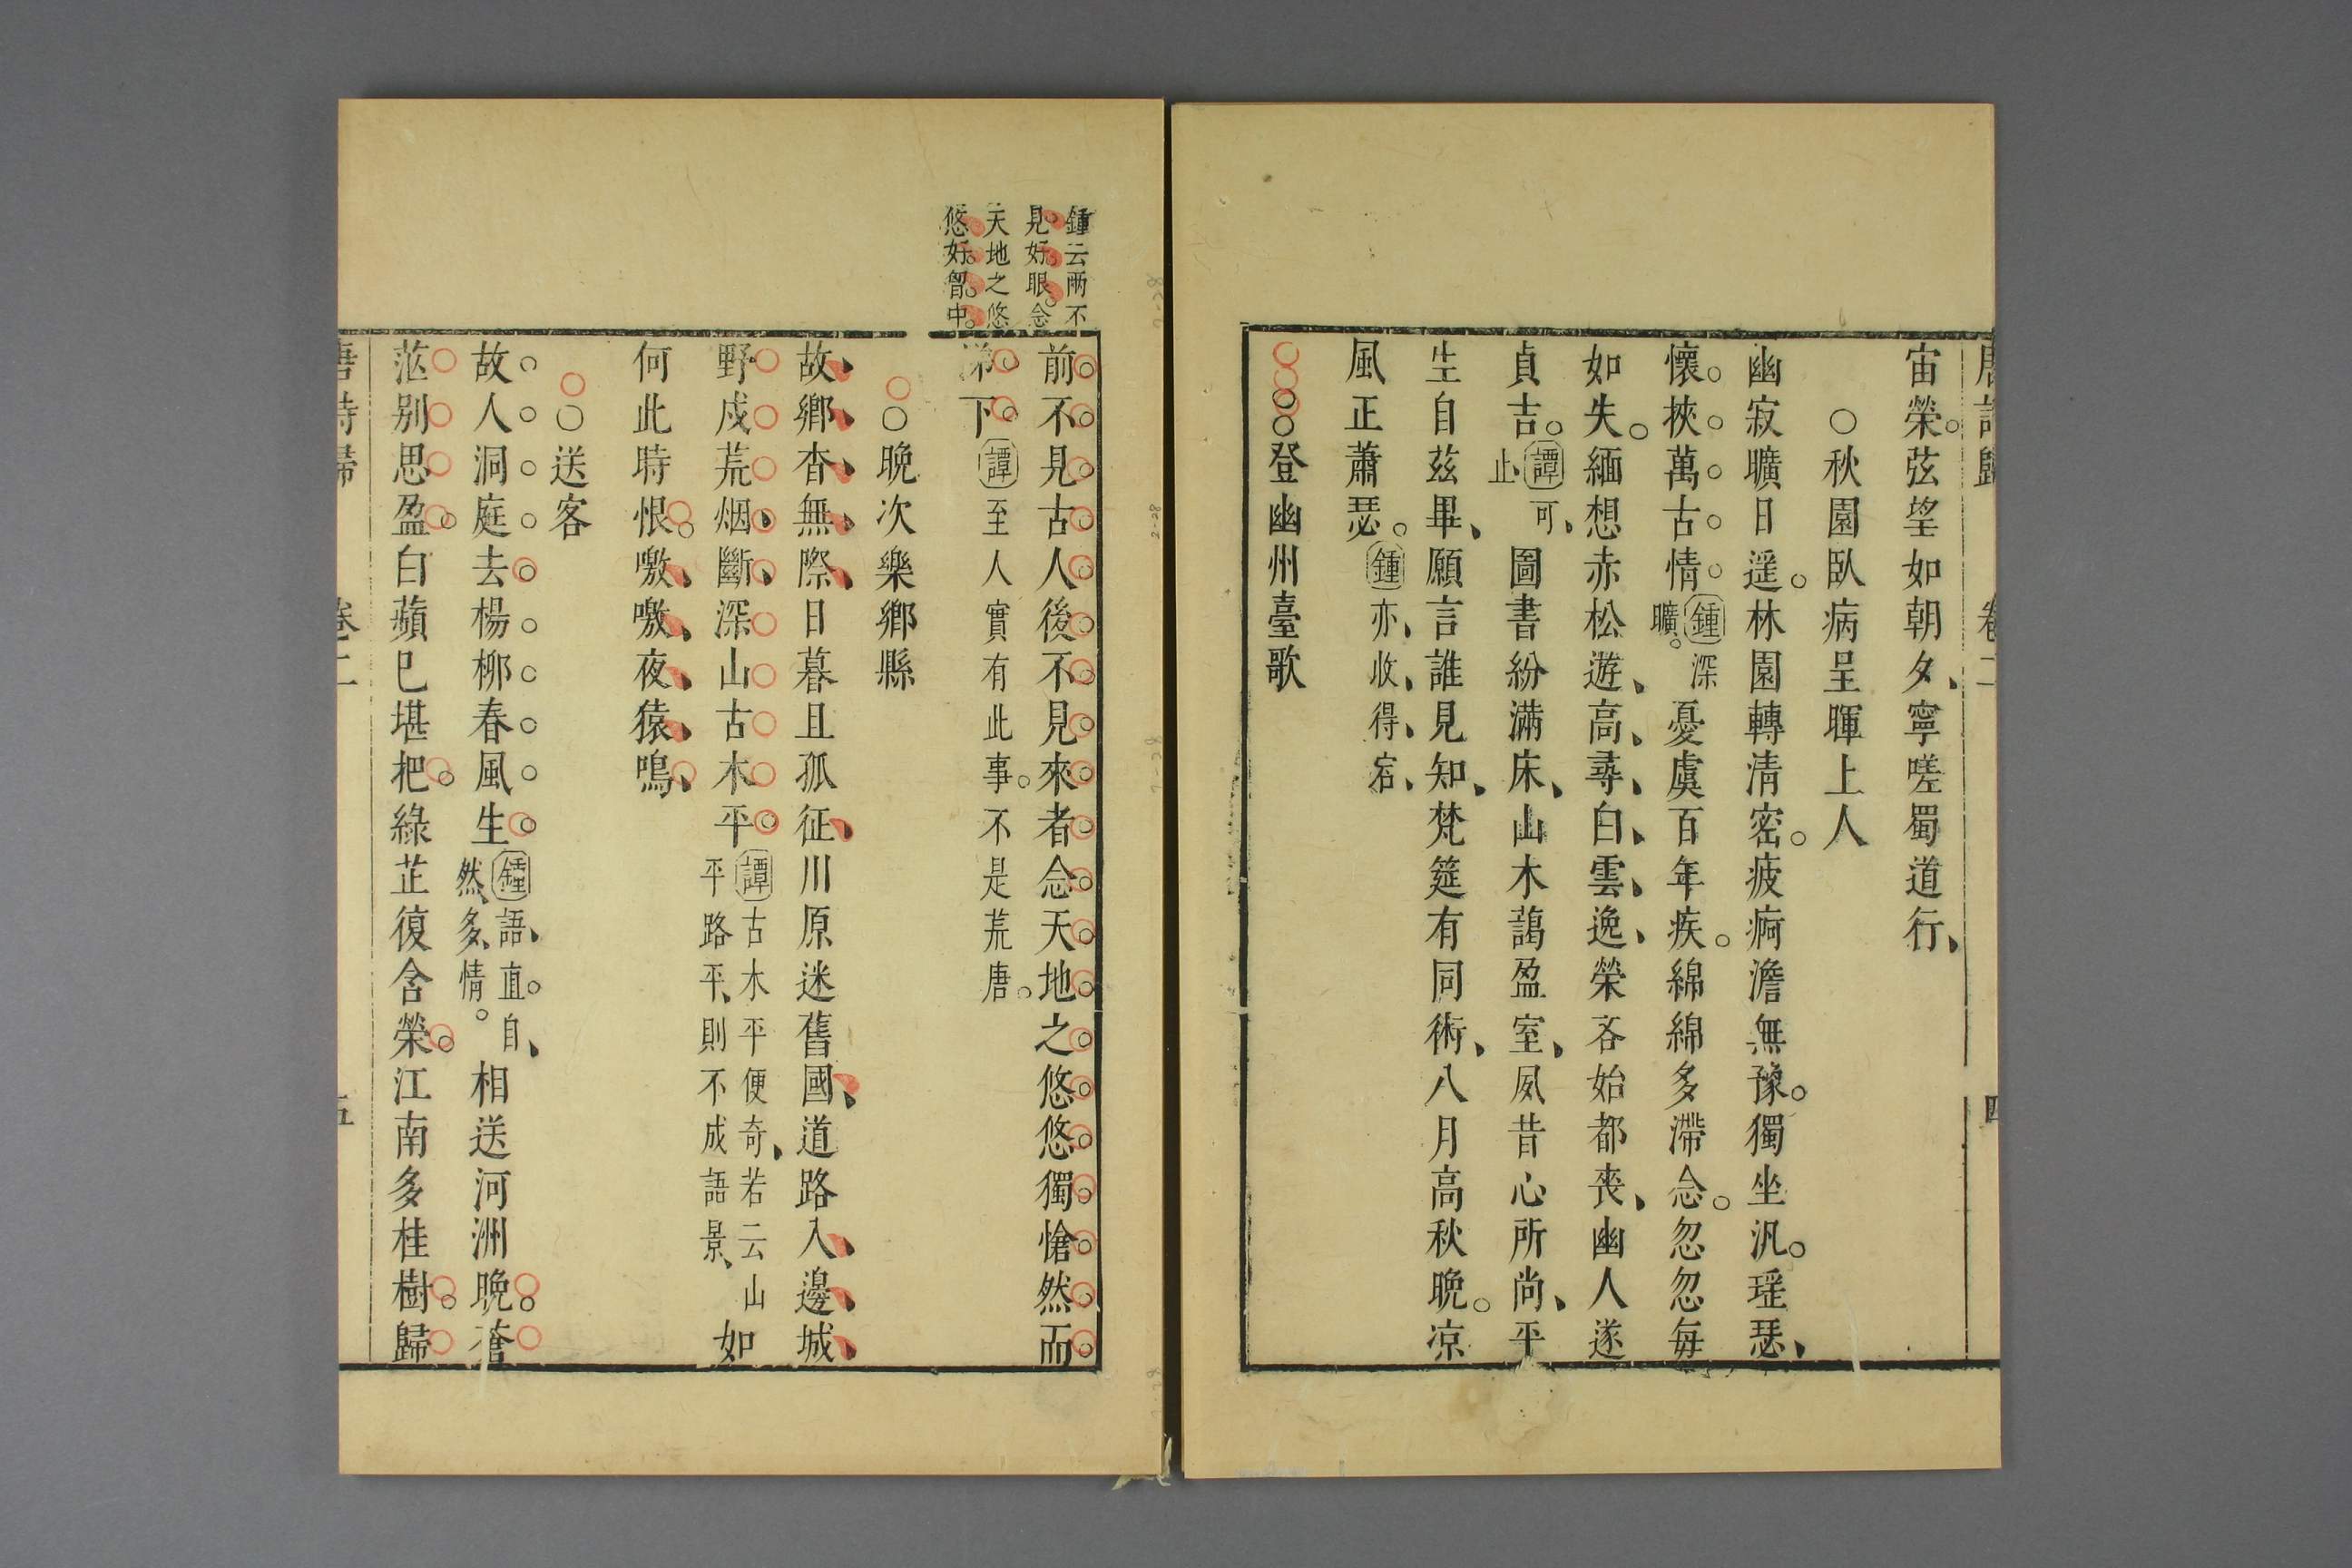 唐詩歸 卷二 四
宙榮弦望如朝夕寧嗟蜀道行
○秋園臥病呈暉上人
幽寂曠日遥林園轉清密疲痾澹無豫獨坐汎瑶瑟
懷挾萬古情鍾深曠憂虞百年疾綿綿多滯念忽忽每
如失緬想赤松遊高尋白雲逸榮吝始都喪幽人遂
貞吉譚可止圖書紛滿床山木藹盈室夙昔心所尚平
生自茲畢願言誰見知梵筵有同術八月高秋晚凉
風正蕭瑟鍾亦收得宕
○○登幽州臺歌
鍾云兩不
見好眼念
天地之悠
悠好胷中
前不見古人後不見來者念天地之悠悠獨愴然而
涕下譚至人實有此事不是荒唐
○晚次樂鄉縣
故鄉杳無際日暮且孤征川原迷舊國道路入邊城
野戍荒烟斷深山古木平譚古木平便奇若云山平路平則不成語景如
何此時恨噭噭夜猿鳴
○送客
故人洞庭去楊柳春風生鍾語直自然多情相送河洲晚蒼
茫别思盈白蘋已堪把綠芷復含榮江南多桂樹歸
唐詩歸 卷二 五